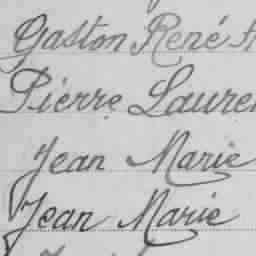 Gaston René
Pierre Laure
Jean Marie
Jean Marie